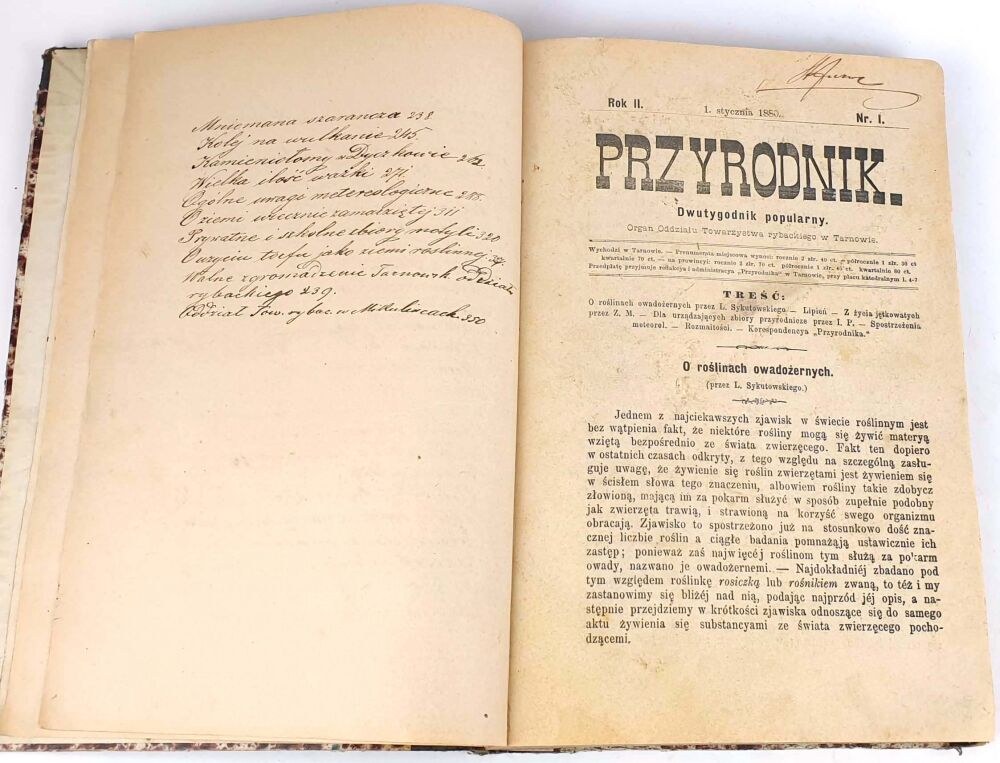 Mniemana szarancza 238
Kolej na wulkanie 245.
Kamieniołomy w Dyczkowie 262
Wielka ilość ważki 271.
Ogólne uwagi metereologiczne 285.
O ziemi wiecznie zamarzniętej 311
Prywatne i szkolne zbiory motyli 320
O użyciu torfu jako ziemi roślinnej
Walne zgromadzenie Tarnowsk. Oddziału
rybackiego 239.
Oddział Tow. rybac. w Mikulińcach. 350
Rok II.
1. stycznia 1880.
Nr. I.
PRZYRODNIK.
Dwutygodnik popularny.
Organ Oddziału Towarzystwa rybackiego w Tarnowie.
Wychodzi w Tarnowie. — Prenumerata miejscowa wynosi: rocznie 2 złr. 40 ct. — półrocznie 1 złr. 30 ct
kwartalnie 70 ct. — na prowincyi: rocznie 2 złr. 70 ct. półrocznie 1 złr. 45 ct. kwartalnie 80 ct.
Przedpłatę przyjmuje redakcya i administracya „Przyrodnika" w Tarnowie, przy placu katedralnym l. 4-7
TREŚĆ:
O roślinach owadożernych przez L. Sykutowskiego — Lipień — Z życia jętkowatych
przez Z. M. — Dla urządzających zbiory przyrodnicze przez I. P. — Spostrzeżenia
meteorol. — Rozmaitości. — Korespondencya „Przyrodnika."
O roślinach owadożernych.
(przez L. Sykutowskiego.)
Jednem z najciekawszych zjawisk w świecie roślinnym jest
bez wątpienia fakt, że niektóre rośliny mogą się żywić materyą
wziętą bezpośrednio ze świata zwierzęcego. Fakt ten dopiero
w ostatnich czasach odkryty, z tego względu na szczególną zasłu-
guje uwagę, że żywienie się roślin zwierzętami jest żywieniem się
w ścisłem słowa tego znaczeniu, albowiem rośliny takie zdobycz
złowioną, mającą im za pokarm służyć w sposób zupełnie podobny
jak zwierzęta trawią, i strawioną na korzyść swego organizmu
obracają. Zjawisko to spostrzeżono już na stosunkowo dość zna-
cznej liczbie roślin a ciągłe badania pomnażają ustawicznie ich
zastęp; ponieważ zaś najwięcéj roślinom tym służą za pokarm
owady, nazwano je owadożernemi. — Najdokładniéj zbadano pod
tym względem roślinkę rosiczką lub rośnikiem zwaną, to téż i my
zastanowimy się bliżéj nad nią, podając najprzód jéj opis, a na-
stępnie przejdziemy w krótkości zjawiska odnoszące się do samego
aktu żywienia się substancyami ze świata zwierzęcego pocho-
dzącemi.